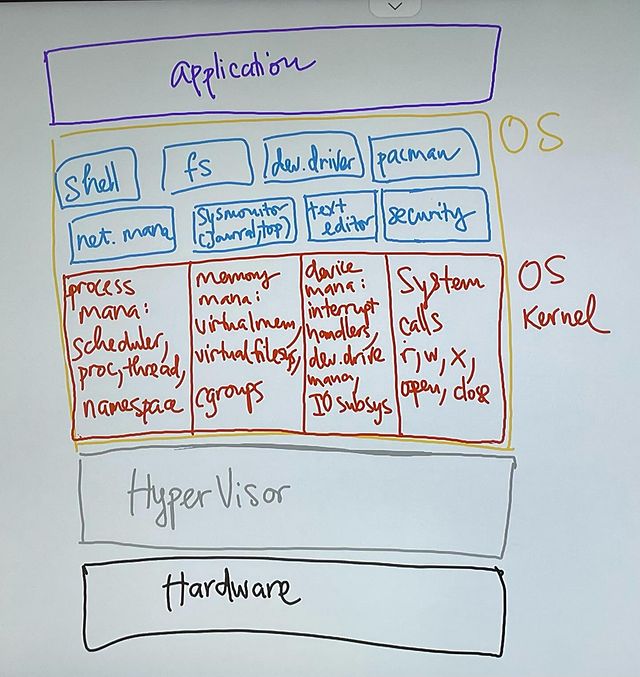 application
OS
shell
fs
dev.driver
pacman
net. mana
sysmonitor
(jounral,top)
text
editor
security
process
mana:
scheduler,
proc,thread,
namespace
memory
mana:
virtualmem,
virtualfilesys,
cgroups
device
mana:
interrupt
handlers,
dev.drive
mana,
IO subsys
System
calls
r, w, x,
open, close
OS
Kernel
HyperVisor
Hardware